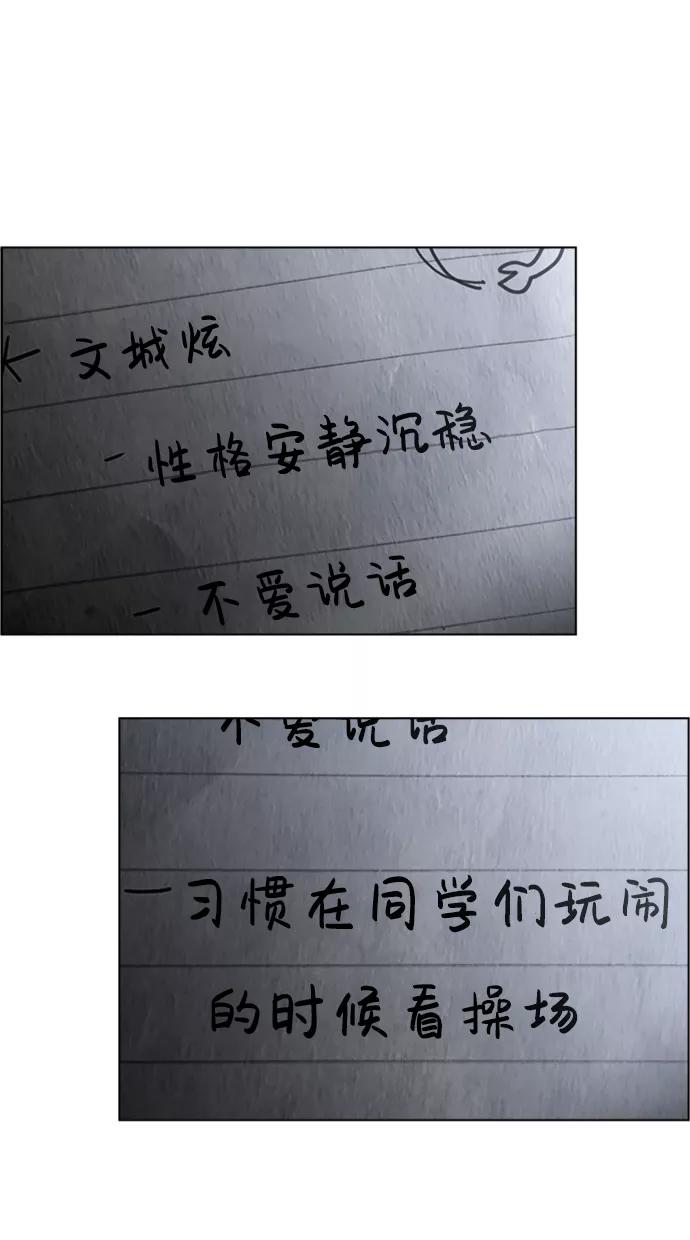 文城炫
- 性格安静沉稳
- 不爱说话
不爱说话
一习惯在同学们玩闹
的时候看操场